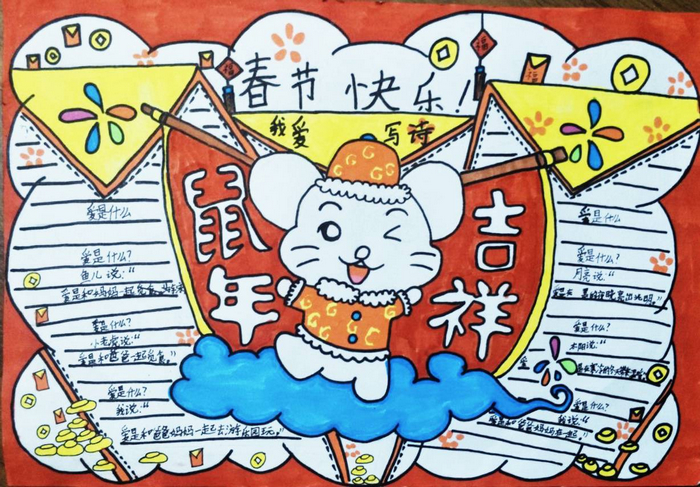 春节快乐!
福
福
福
我爱写诗
鼠年
吉祥
爱是什么
爱是什么?
鱼儿说:“
爱是和妈妈一起觅食。
爱是什么?
小老虎说:“
爱是和爸爸一起觅食。”
爱是什么?
我说:“
爱是和爸爸妈妈一起去游乐园玩。”
爱是什么
爱是什么?
月亮说:“
爱是什么?
太阳说:“
爱是什么?
我说:“
爱是和爸爸妈妈在一起。”